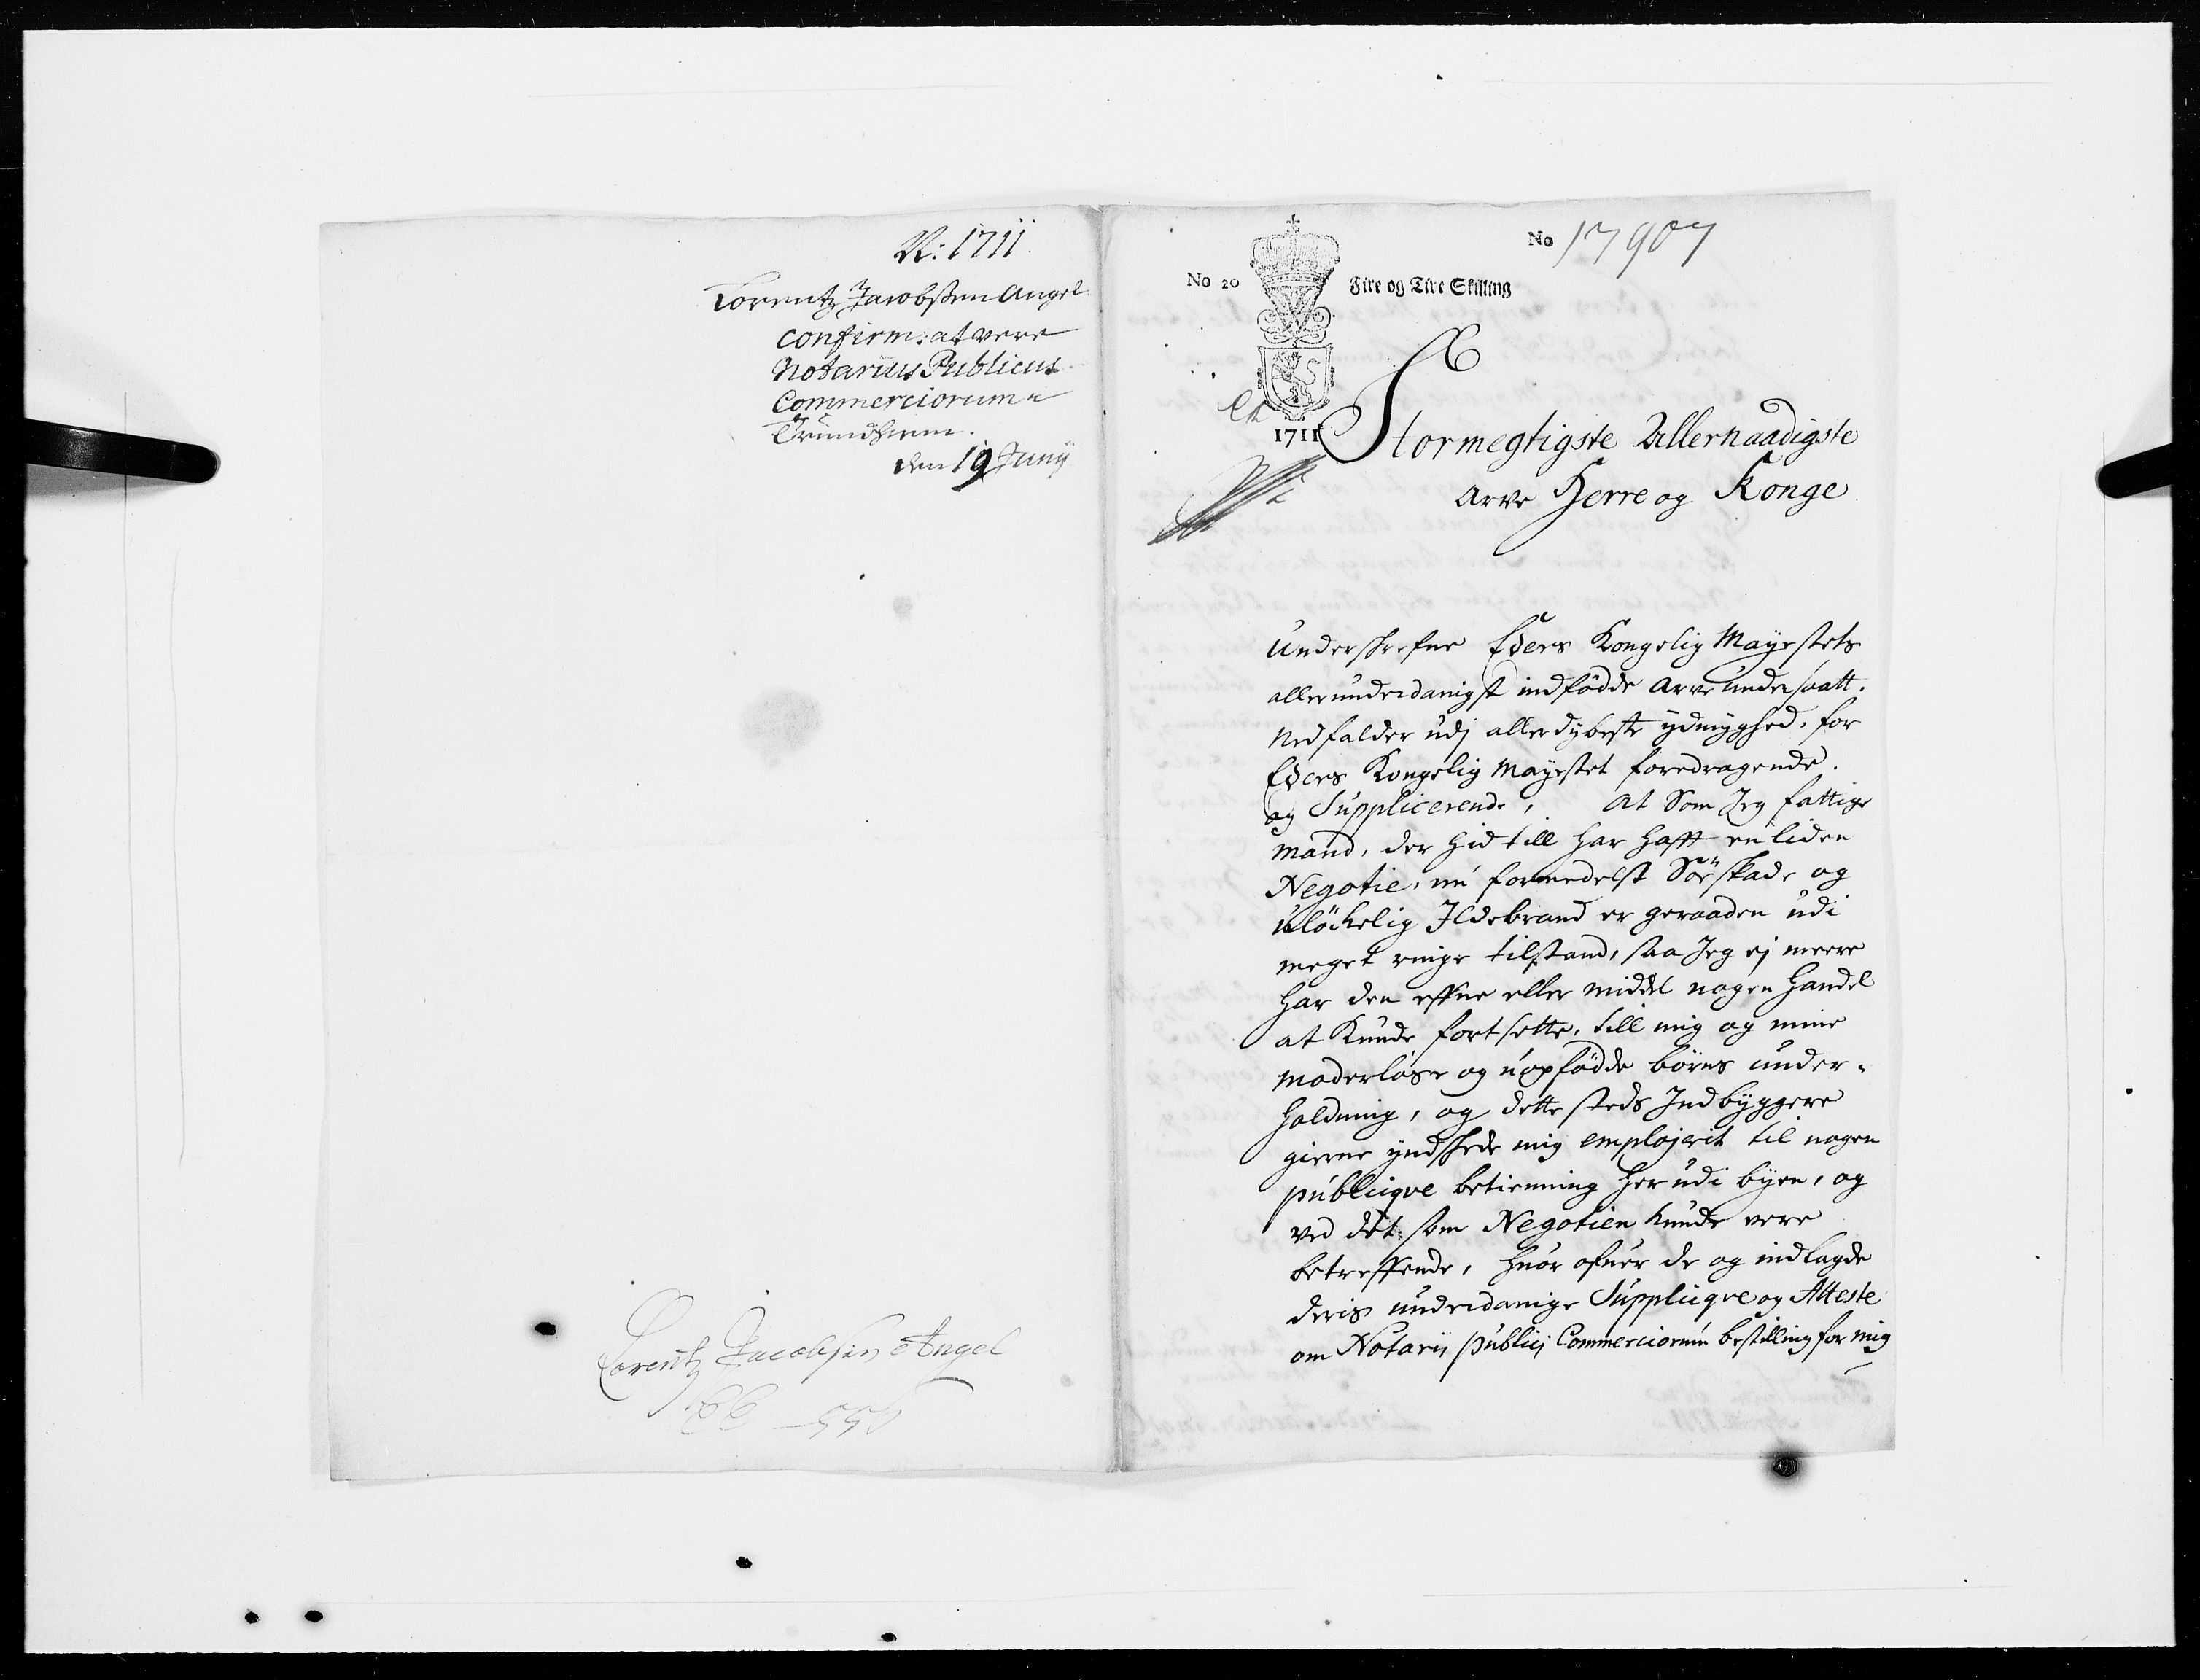 N: 1711
Lorentz Jacobsen Angel
confirm: at være
Notarius Publicus
Commerciorum
Trundhiem.
den 19 Junij
Lorentz Jacobsen Angel
No 17907
No 20 Fire og Tive Skilling
1711
Stormegtigste Allernaadigste
Arve Herre og Konge
Underskrefne Eders Kongelig Mayestets
allerunderdanigst indfödde Arve undersaatt.
Nedfalder udj allerdybeste ydmyghed, for
Eders Kongelig Mayestet foredragende.
og Supplicerende, At Som Jeg fattige
Mand, der hid till har hafft en liden
Negotie, nu formedelst Söeskade og
ulöckelig Jldebrand er geraaden udi
meget ringe tilstand, saa Jeg ej meere
har den effne eller middel nogen Handel
at Kunde fortsette, till mig og mine
moderlöse og uopfödde börns under-
holdning, og dette steds Indbyggere
gierne yndskede mig emplojerit til nogen
publiqve betienning her udi byen, og
ved det som Negotien kunde vere
betreffende, huor ofuer de og indlagde
deris underdanige Suppliqve og Atteste
om Notarij publicj Commerciorum bestilling for mig